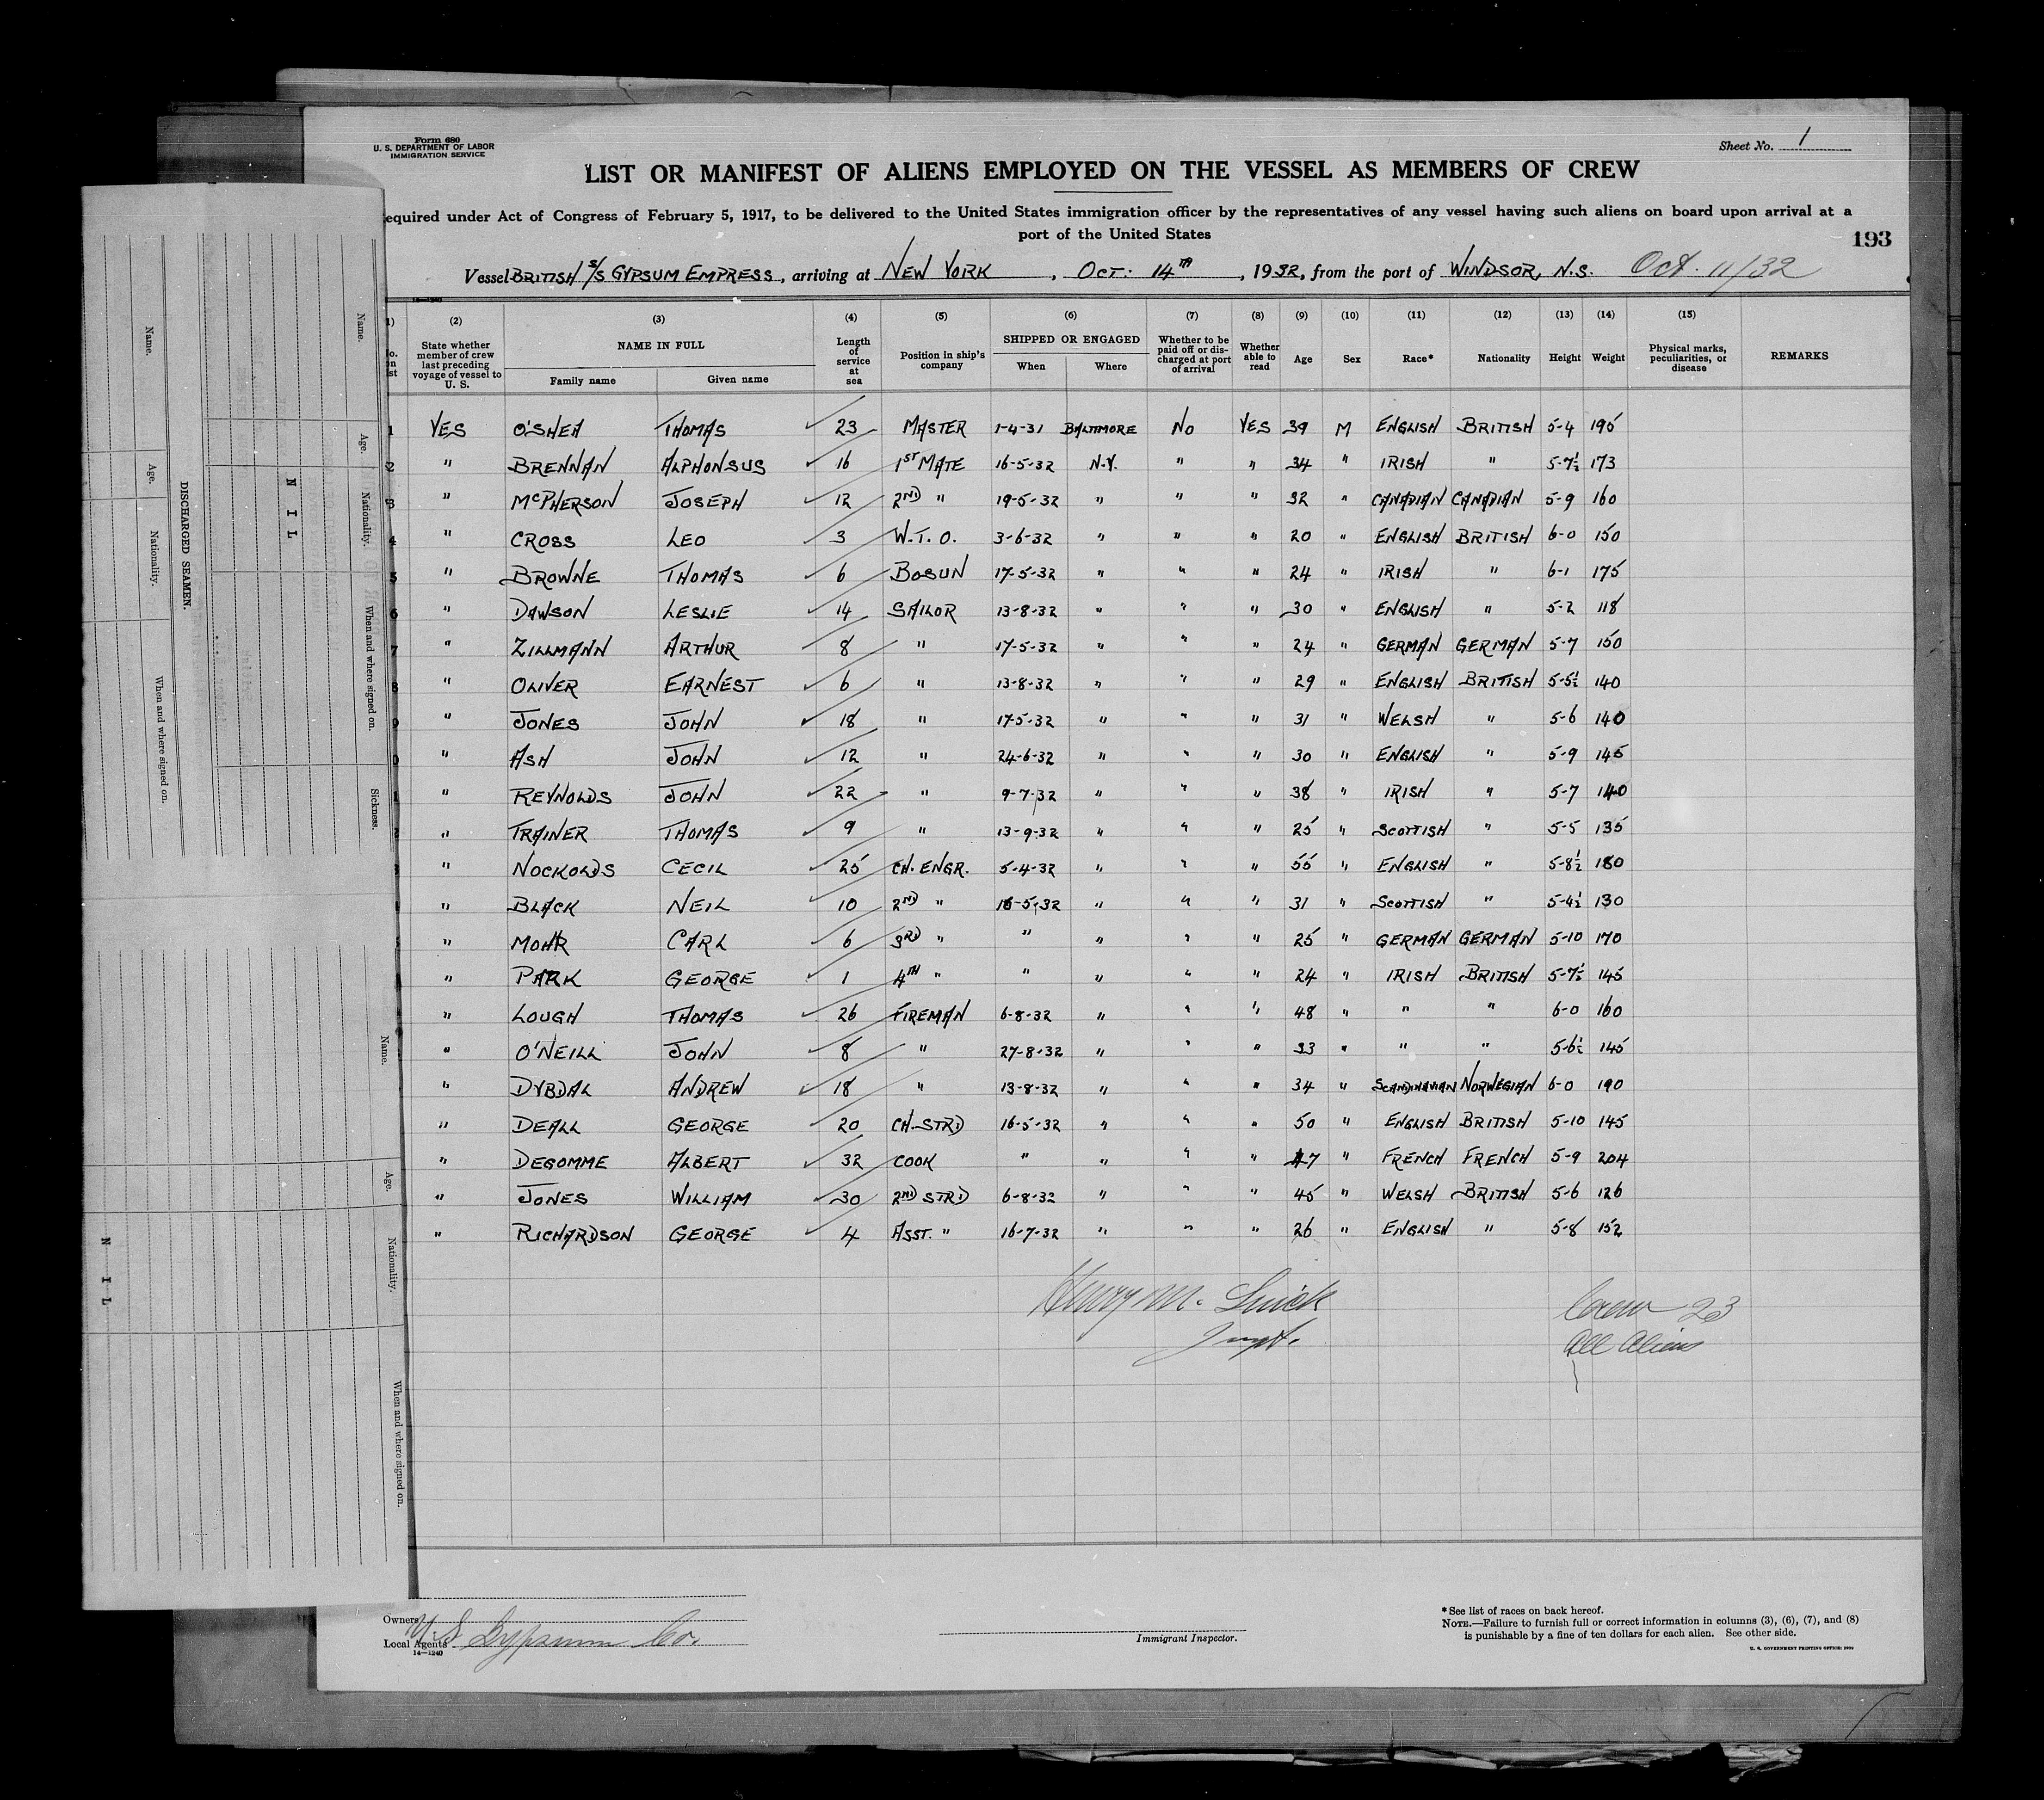 Form 680
U. S. DEPARTMENT OF LABOR
IMMIGRATION SERVICE
Sheet No. 1
LIST OR MANIFEST OF ALIENS EMPLOYED ON THE VESSEL AS MEMBERS OF CREW
equired under Act of Congress of February 5, 1917, to be delivered to the United States immigration officer by the representatives of any vessel having such aliens on board upon arrival at a
port of the United States
193
Vessel BRITISH S/S GYPSUM EMPRESS, arriving at NEW YORK, OCT. 14TH, 1932, from the port of WINDSOR, N.S. Oct. 11/32
(2) (3) (4) (5) (6) (7) (8) (9) (10) (11) (12) (13) (14) (15)
State whether member of crew last preceding voyage of vessel to U. S. NAME IN FULL Family name Given name Length of service at sea Position in ship's company SHIPPED OR ENGAGED When Where Whether to be paid off or discharged at port of arrival Whether able to read Age Sex Race* Nationality Height Weight Physical marks, peculiarities, or disease REMARKS
1 YES O'SHEA THOMAS 23 MASTER 1-4-31 BALTIMORE NO YES 39 M ENGLISH BRITISH 5-4 195
2 " BRENNAN ALPHONSUS 16 1ST MATE 16-5-32 N.Y. " " 34 " IRISH " 5-7½ 173
3 " McPHERSON JOSEPH 12 2ND " 19-5-32 " " " 32 " CANADIAN CANADIAN 5-9 160
4 " CROSS LEO 3 W.T.O. 3-6-32 " " " 20 " ENGLISH BRITISH 6-0 150
5 " BROWNE THOMAS 6 BOSUN 17-5-32 " " " 24 " IRISH " 6-1 175
6 " DAWSON LESLIE 14 SAILOR 13-8-32 " " " 30 " ENGLISH " 5-2 118
7 " ZILLMANN ARTHUR 8 " 17-5-32 " " " 24 " GERMAN GERMAN 5-7 150
8 " OLIVER EARNEST 6 " 13-8-32 " " " 29 " ENGLISH BRITISH 5-5½ 140
9 " JONES JOHN 18 " 17-5-32 " " " 31 " WELSH " 5-6 140
0 " ASH JOHN 12 " 24-6-32 " " " 30 " ENGLISH " 5-9 145
1 " REYNOLDS JOHN 22 " 9-7-32 " " " 38 " IRISH " 5-7 140
2 " TRAINER THOMAS 9 " 13-9-32 " " " 25 " SCOTTISH " 5-5 135
3 " NOCKOLDS CECIL 25 CH. ENGR. 5-4-32 " " " 55 " ENGLISH " 5-8½ 180
" BLACK NEIL 10 2ND " 16-5-32 " " " 31 " SCOTTISH " 5-4½ 130
" MOHR CARL 6 3RD " " " " " 25 " GERMAN GERMAN 5-10 170
" PARK GEORGE 1 4TH " " " " " 24 " IRISH BRITISH 5-7½ 145
" LOUGH THOMAS 26 FIREMAN 6-8-32 " " " 48 " " " 6-0 160
" O'NEILL JOHN 8 " 27-8-32 " " " 33 " " " 5-6½ 145
" DYBDAL ANDREW 18 " 13-8-32 " " " 34 " SCANDINAVIAN NORWEGIAN 6-0 190
" DEALL GEORGE 20 CH. STRD 16-5-32 " " " 50 " ENGLISH BRITISH 5-10 145
" DEGOMME ALBERT 32 COOK " " " " 47 " FRENCH FRENCH 5-9 204
" JONES WILLIAM 30 2ND STRD 6-8-32 " " " 45 " WELSH BRITISH 5-6 126
" RICHARDSON GEORGE 4 ASST. " 16-7-32 " " " 26 " ENGLISH " 5-8 152
Henry M.
Crew 23
Inspt.
All Aliens
Owners
Local Agents U. S. Gypsum Co.
14—1240
Immigrant Inspector.
*See list of races on back hereof.
NOTE.—Failure to furnish full or correct information in columns (3), (6), (7), and (8)
is punishable by a fine of ten dollars for each alien. See other side.
U. S. GOVERNMENT PRINTING OFFICE
DISCHARGED SEAMEN.
Name. Age. Nationality. When and where signed on.
Name. Age. Nationality. When and where signed on. Sickness.
NIL
Name. Age. Nationality. When and where signed on.
NIL